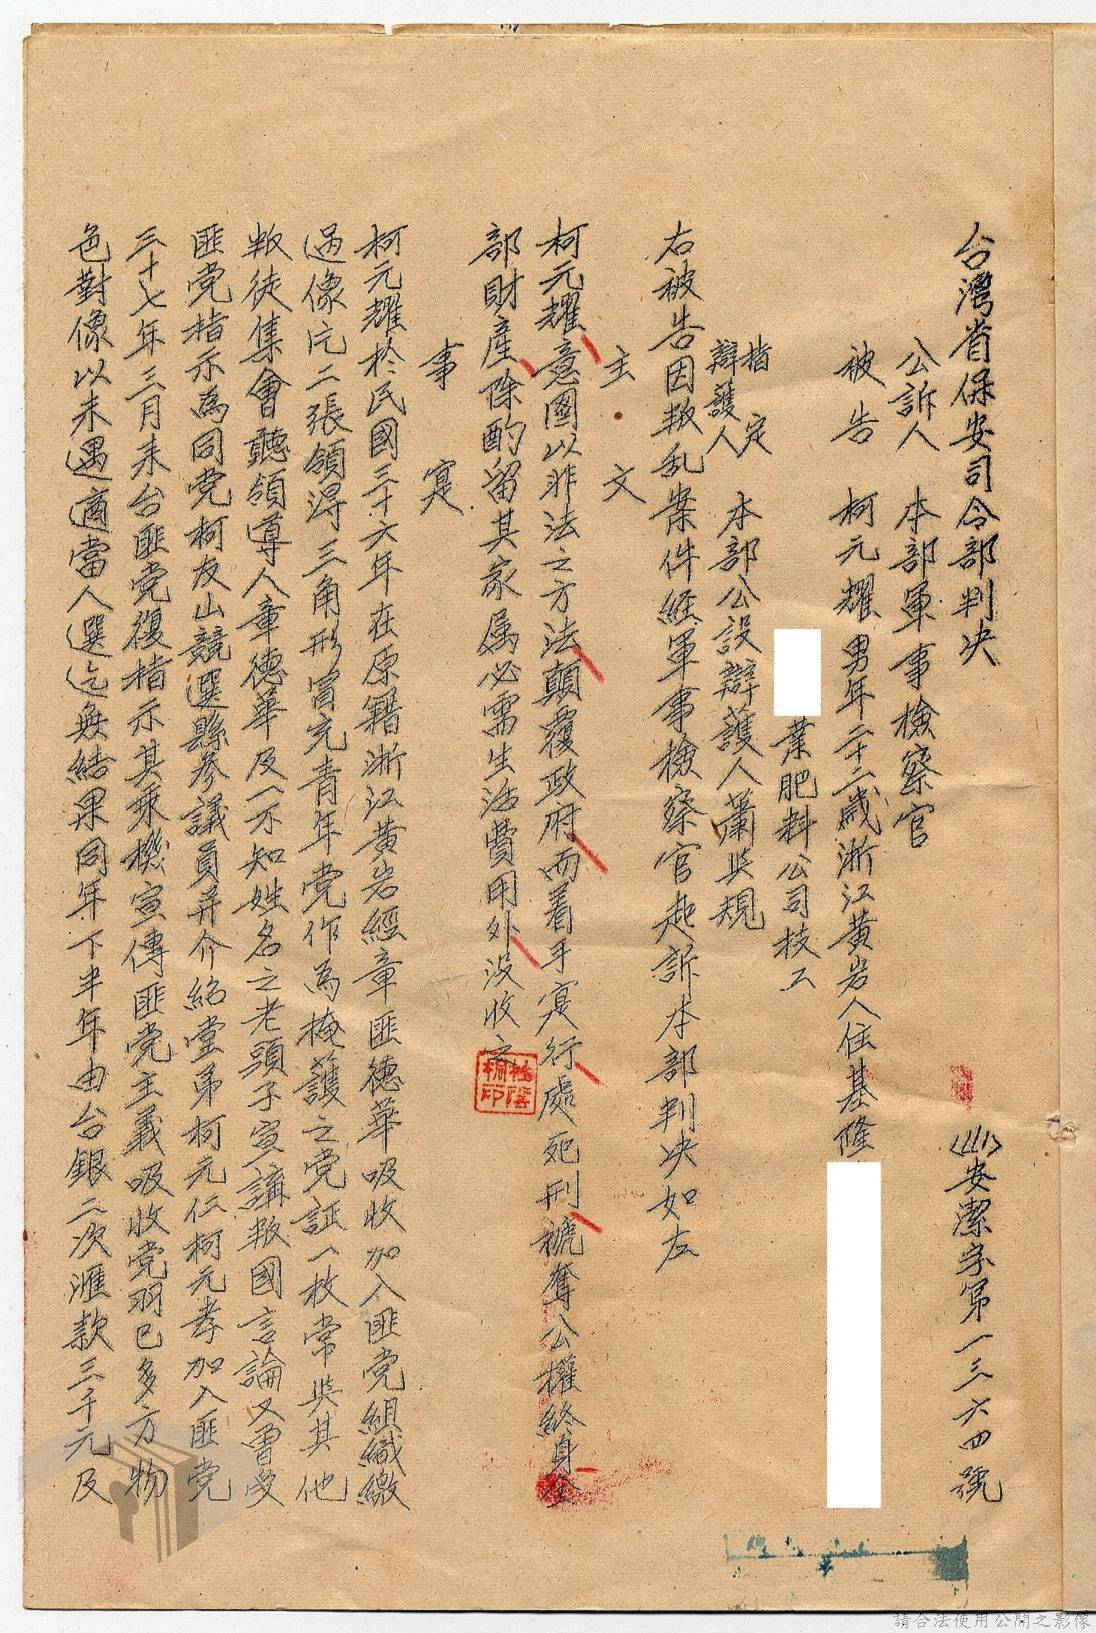 台灣省保安司令部判决
(41)安潔字第一三六四號
公訴人 本部軍事檢察官
被告 柯元耀 男年二十二歲浙江黃岩人住基隆
業肥料公司技工
指定
辯護人 本部公設辯護人蕭與規
右被告因叛乱案件經軍事檢察官起訴本部判决如左
主文
柯元耀意圖以非法之方法顛覆政府而着手实行處死刑褫奪公權終身全
部財產除酌留其家属必需生活費用外没收之
事实
柯元耀於民國三十六年在原籍浙江黃岩經章匪德華吸收加入匪党組織繳
过像片二張領得三角形冒充青年党作為掩護之党証一枚常与其他
叛徒集會聽領導人章德華及一不知姓名之老頭子宣講叛國言論又曾受
匪党指示為同党柯友山競選縣参議員并介紹堂弟柯元仁柯元孝加入匪党
三十七年三月来台匪党復指示其乘機宣傳匪党主義吸收党羽已多方物
色對像以未遇適當人選迄無結果同年下半年由台銀二次滙款三千元及
請合法使用公開之影像